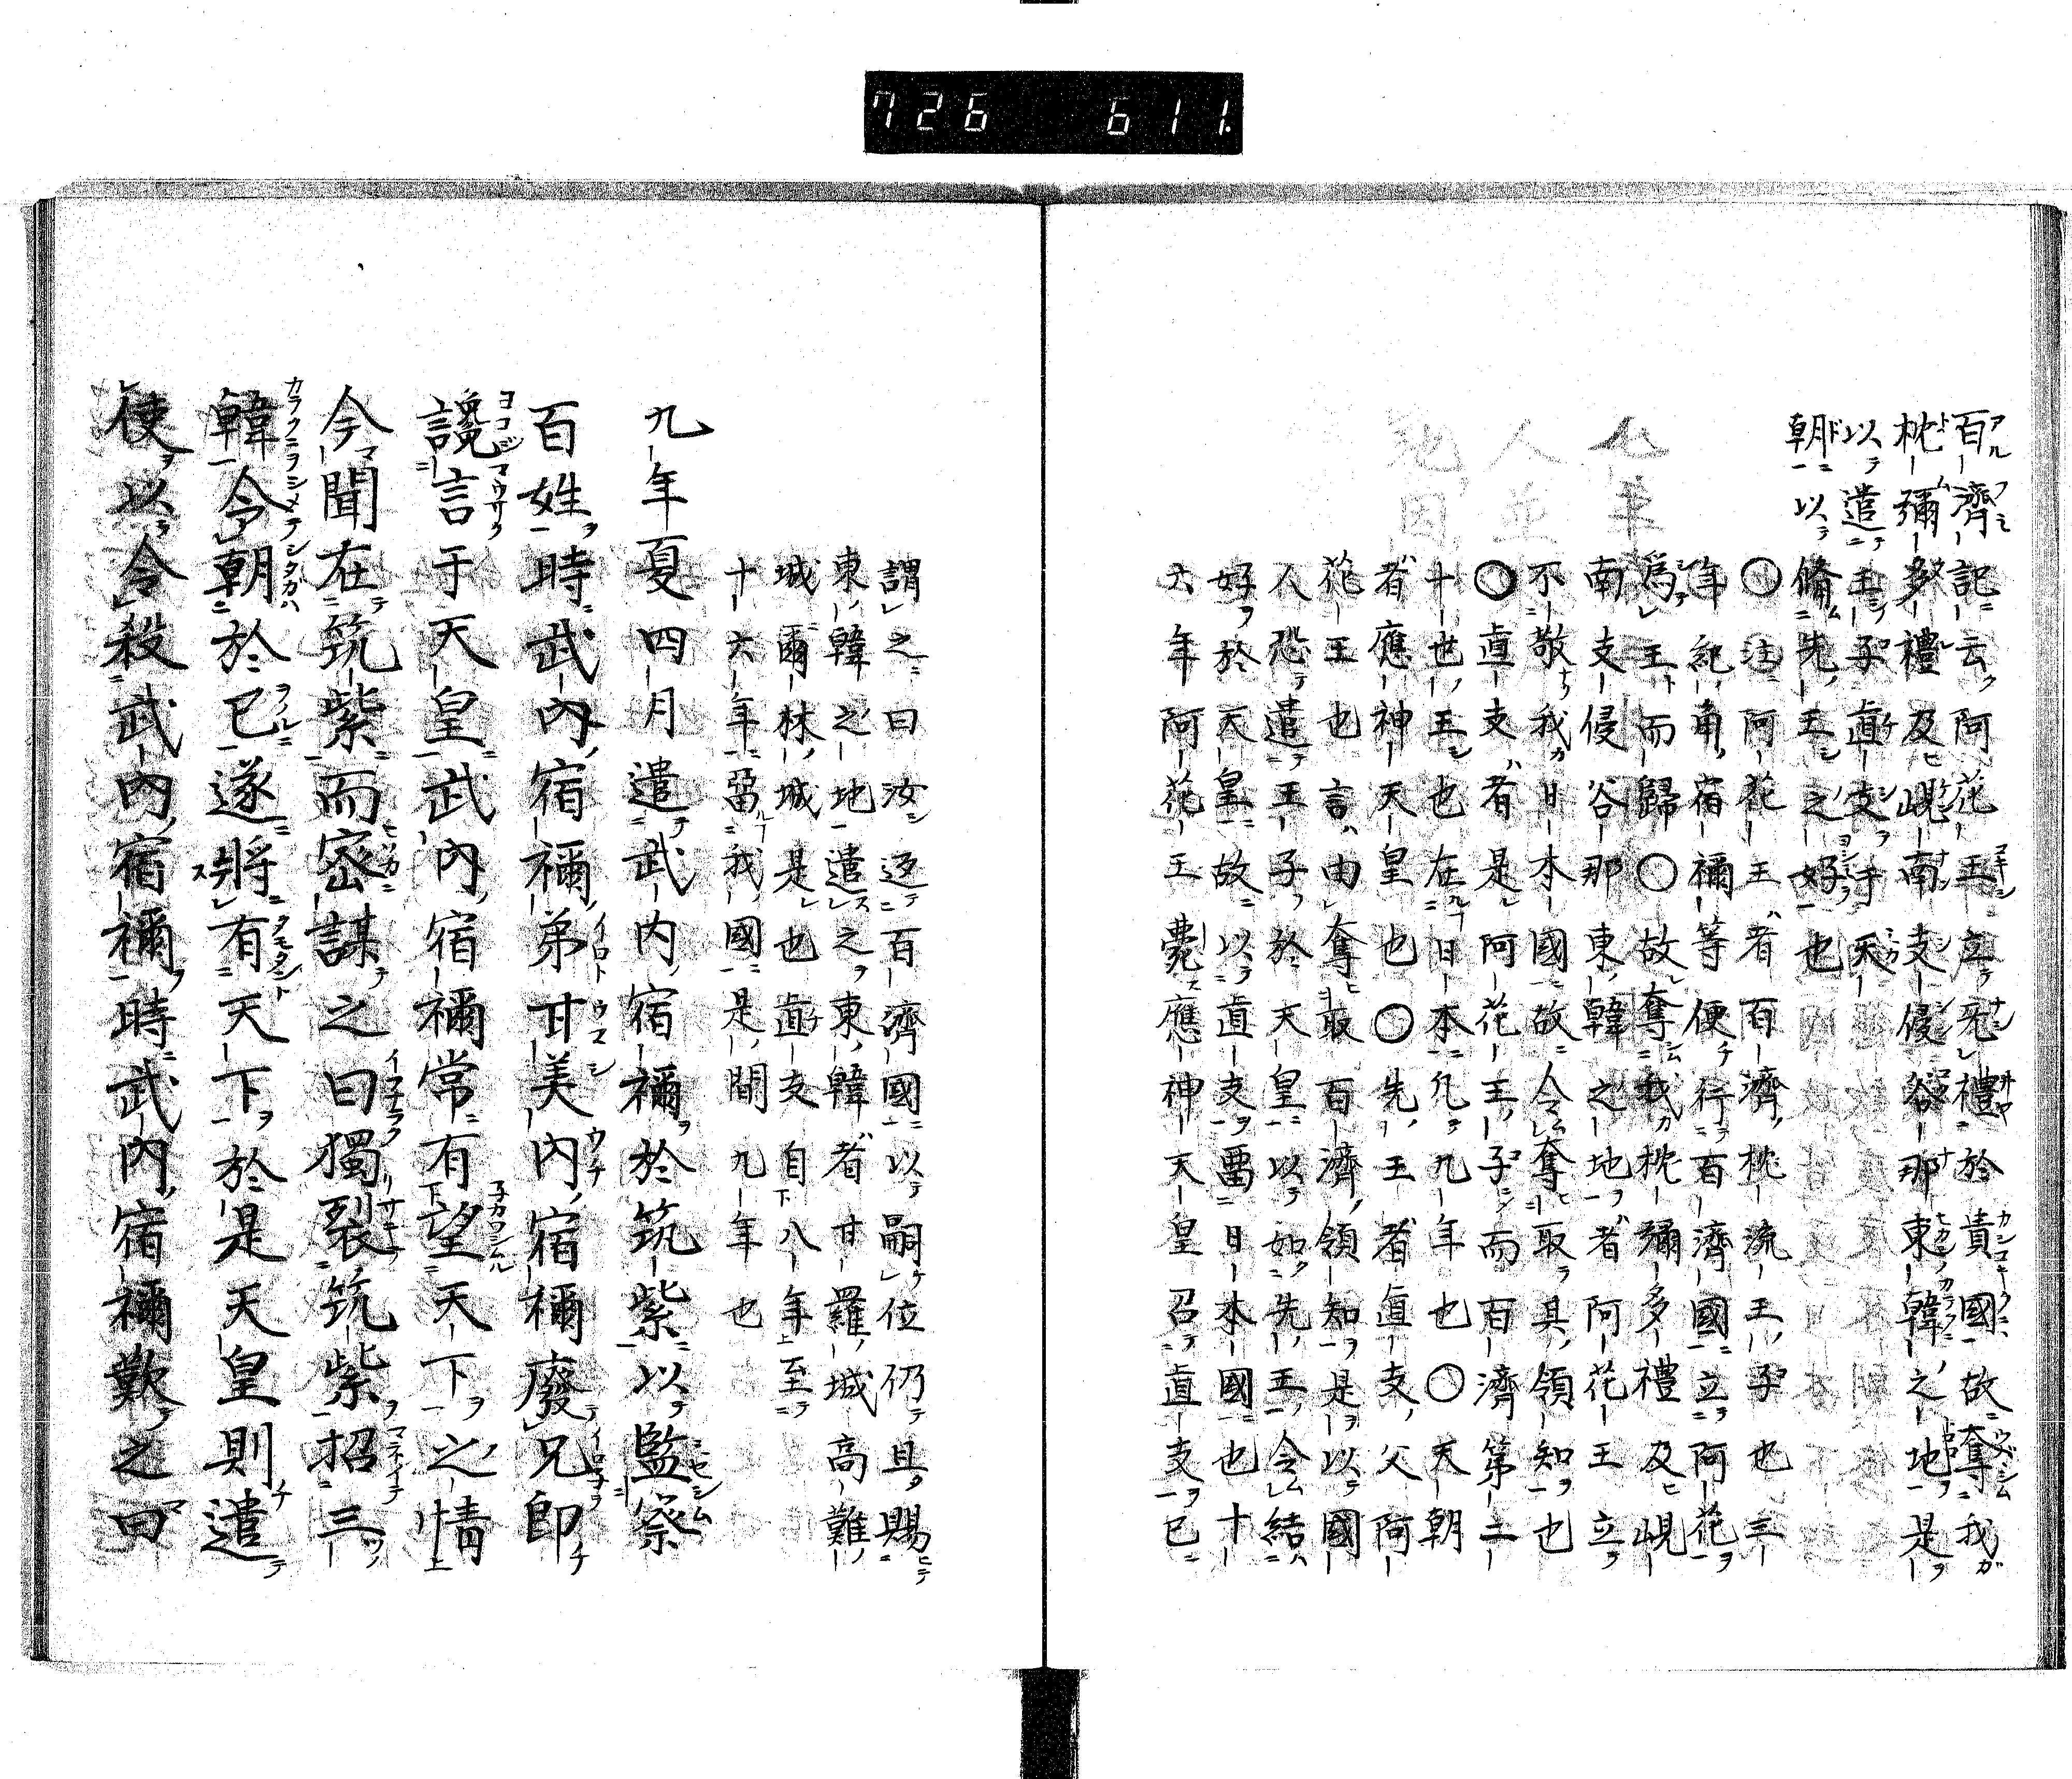 726 611.
百濟記云阿花王立旡禮於貴國故奪我
枕彌多禮及峴南支侵谷那東韓之地是
以遣王子直支于天
朝以脩先王之好也
〇注阿花王者百濟枕流王子也三
年紀角宿禰等便行百濟國立阿花
爲王而歸〇故奪我枕彌多禮及峴
南支侵谷那東韓之地者阿花王立
不敬我日本國故令奪取其領知也
〇直支者是阿花王子而百濟第二
十世王也在日本凡九年也〇天朝
者應神天皇也〇先王者直支父阿
花王也言由奪取百濟領知是以國
人恐遣王子於天皇以如先王令結
好於天皇故以直支畱日本國也十
六年阿花王薨應神天皇召直支已
謂之曰汝返百濟國以嗣位仍且賜
東韓之地遣之東韓者甘羅城高難
城爾林城是也直支自八年至
十六年畱我國是間九年也
九年夏四月遣武内宿禰於筑紫以監察
百姓時武內宿禰弟甘美內宿禰廢兄即
讒言于天皇武內宿禰常有望天下之情
今聞在筑紫而密謀之曰獨裂筑紫招三
韓令朝於已遂將有天下於是天皇則遣
使以令殺武內宿禰時武內宿禰歎之曰